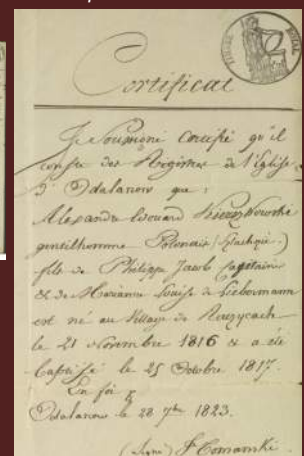 TIMBRE ROYAL
Certificat
Je Soussigné Certifie qu'il
conste des Registres de l'Eglise
d'Odalanow que :
Alexandre Edouard
gentilhomme Polonais
fils de Philippe Jacob Capitaine
& de Marianne Louise de Liebermann
est né au Village de
le 21 Novembre 1816 & a été
baptisé le 25 Octobre 1817.
En foi
Odalanow le 28 7bre 1823.
(Signé)